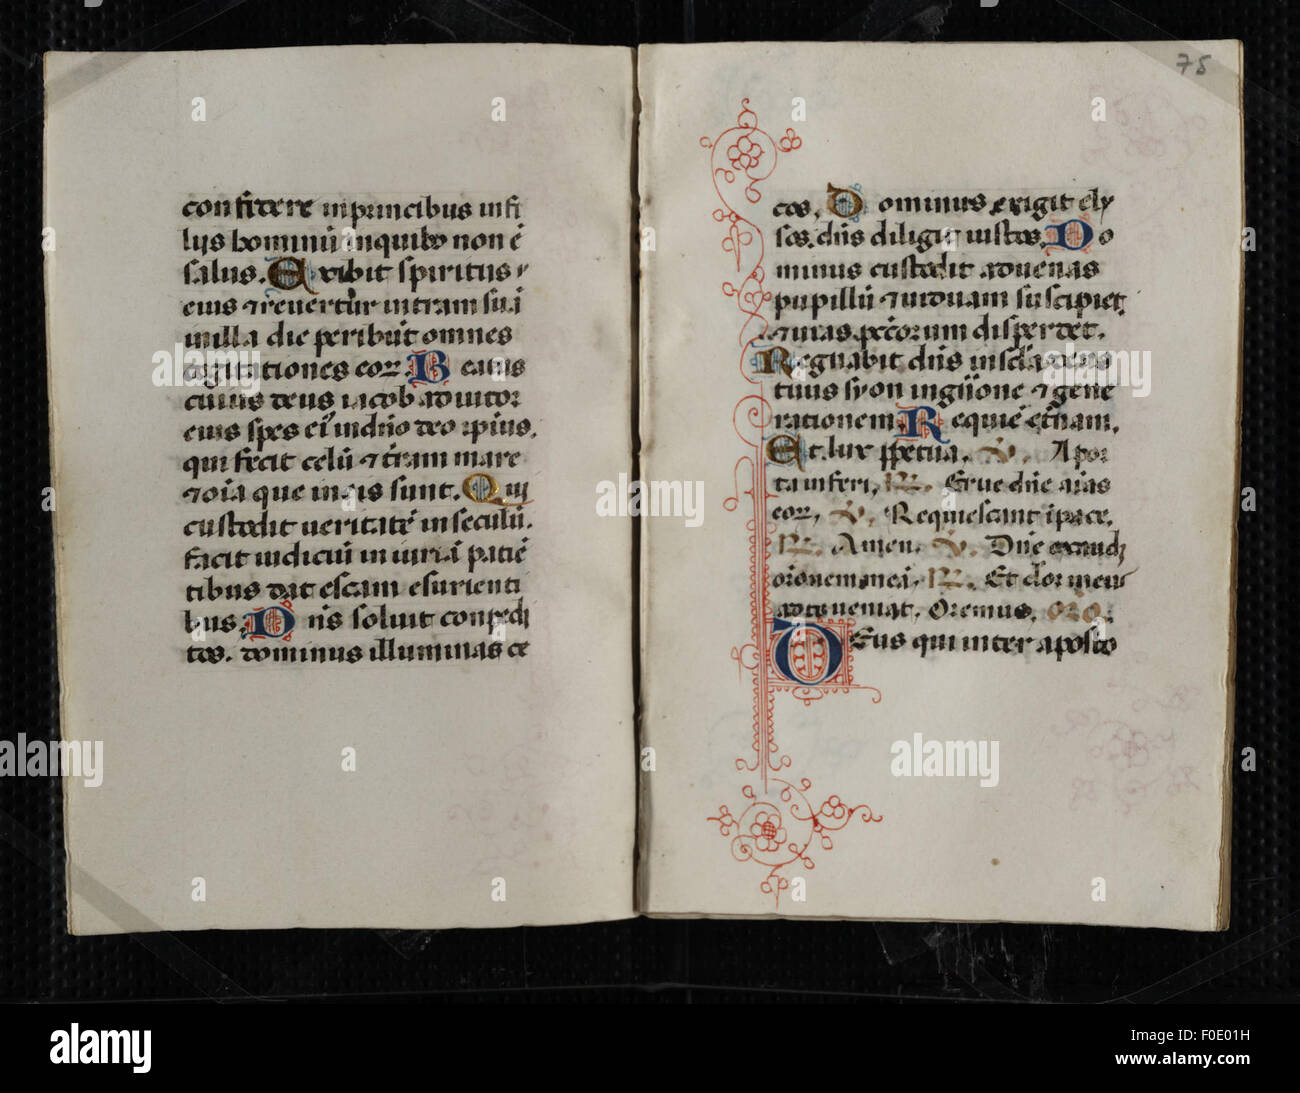 confidere in principibus in fi
lijs hominū in quibꝯ non ē
salus. Exibit spiritus
eius ⁊ revertur in terram suā
in illa die peribūt omnes
cogitationes eoꝝ. Beatus
cuius deus iacob adiutor
eius spes ei᷒ in dn̄o deo ip̄ius.
qui fecit celū ⁊ tr̄am mare
⁊ oīa que in eis sunt. Qui
custodit veritatē in seculū.
facit iudiciū in iuriā patiē
tibus dat escam esurienti
bus. Dn̄s soluit conpedi
tos. dominus illuminat ce
75
cos. Dominus erigit ely
sos. dn̄s diligit iustos. Do
minus custodit advenas
pupillū ⁊ viduam suscipiet
⁊ vias pec̄orum disperdet.
Regnabit dn̄s in sc̄la deus
tuus syon in gn̄ōne ⁊ gene
rationem. Requiē et̄nam.
Et lux ꝑpetua. V. A por
ta inferi. R. Erue dn̄e aīas
eoꝝ. V. Requiescant ī pace.
R. Amen. V. Dn̄e exaudi
or̄onem meā. R. Et clor meus
ad te veniat. Oremus. oŕo.
Deus qui inter aposto
alamy
alamy stock photo
F0E01H
www.alamy.com